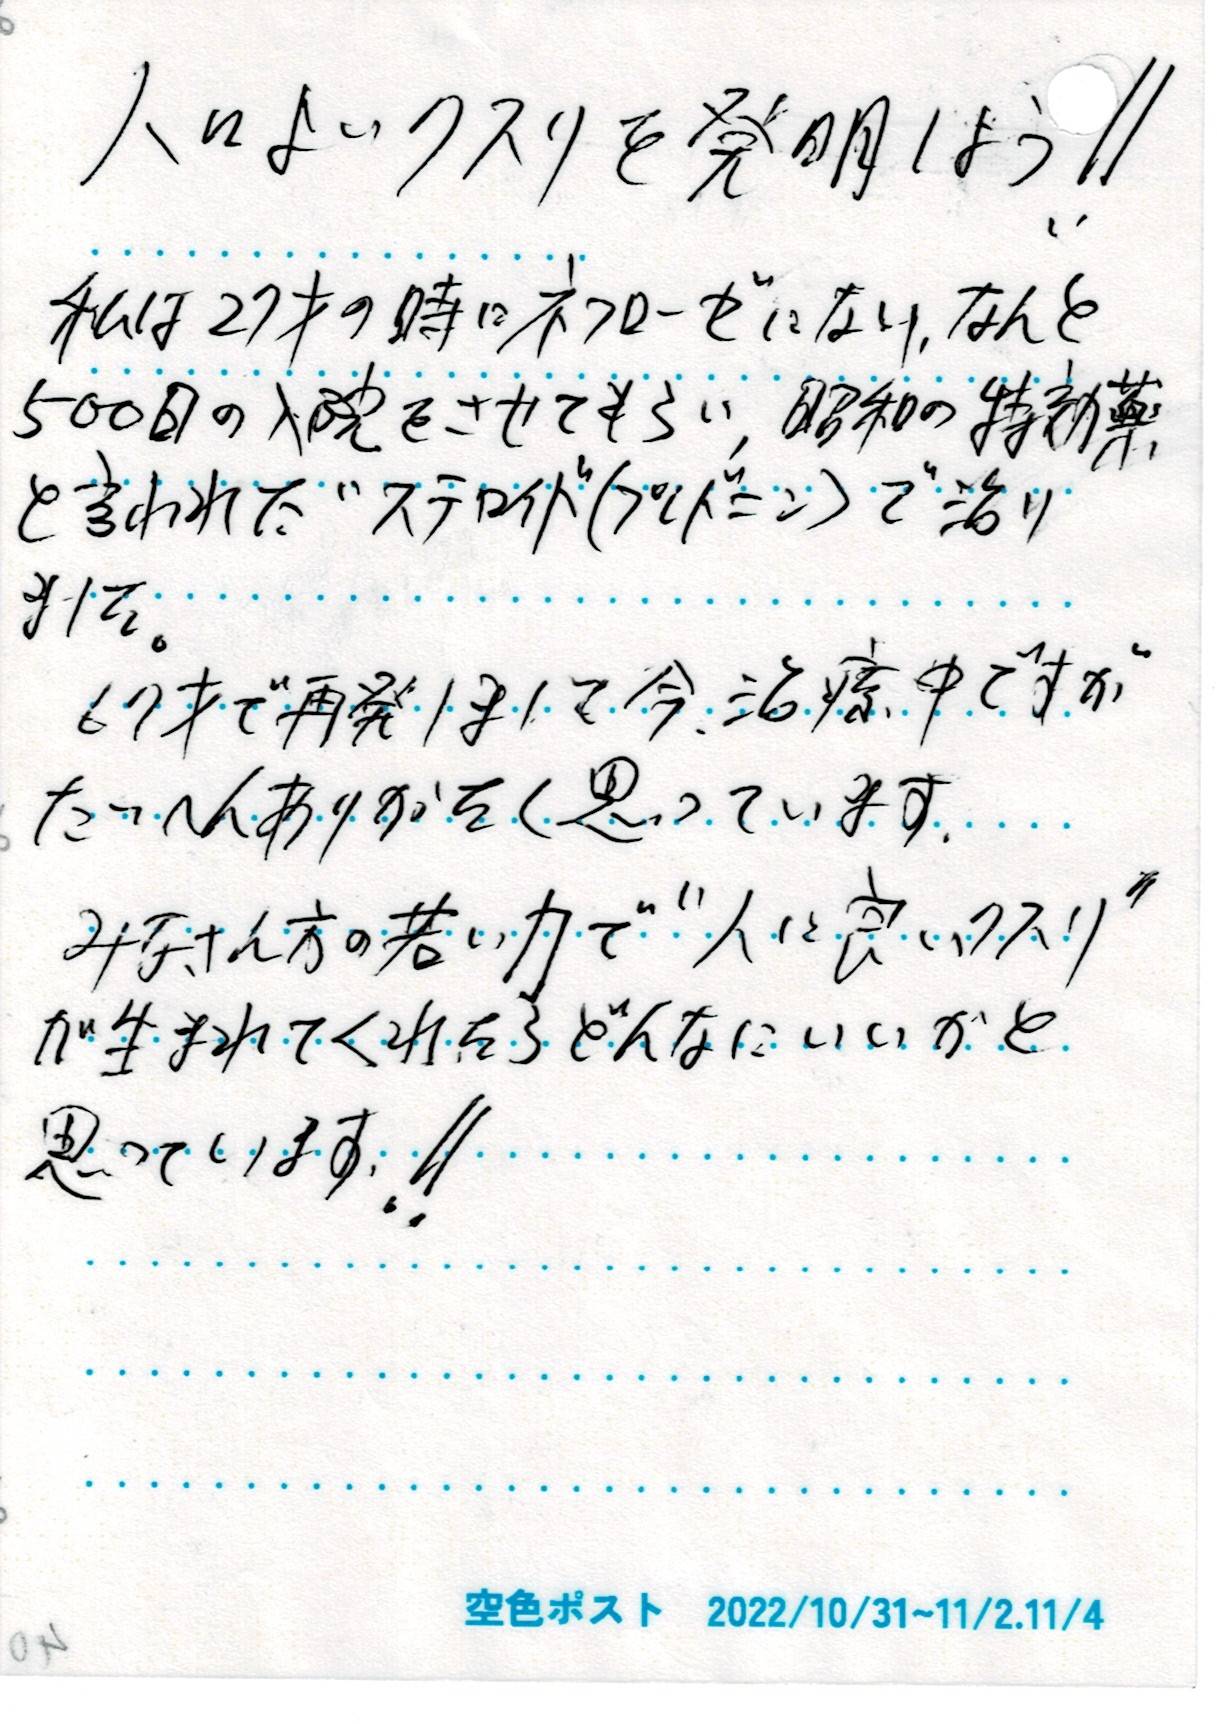 人によいクスリを発明しよう!!
私は27才の時にネフローゼになり、なんと
500日の入院をさせてもらい、昭和の特効薬
と言われた"ステロイド(プレドニン)で治り
ました。
67才で再発しまして今、治療中ですが
たいへんありがたく思っています。
みなさん方の若い力で"人に良いクスリ"
が生まれてくれたらどんなにいいかと
思っています。!!
空色ポスト 2022/10/31~11/2.11/4
40